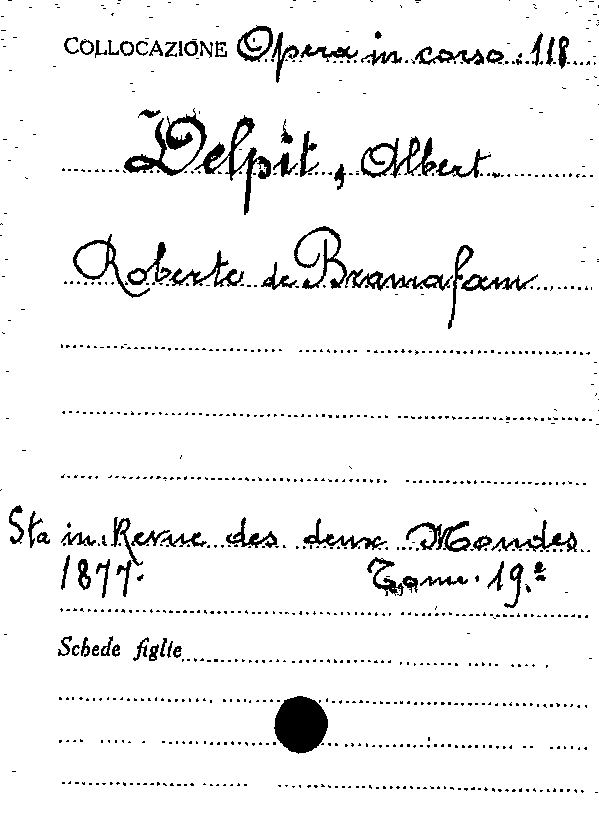 COLLOCAZIONE Opera in corso. 118
Delpit, Albert.
Roberte de Bramafam
Sta in. Revue des deux Mondes
1877. Tome. 19.e
Schede figlie